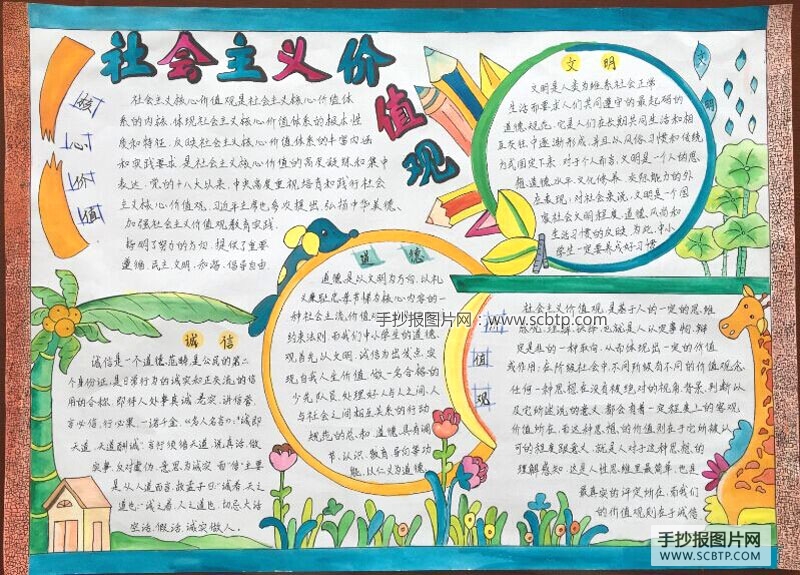 社会主义价值观
核
心
价
值
社会主义核心价值观是社会主义核心价值体
系的内核,体现社会主义核心价值体系的根本性
质和特征,反映社会主义核心价值体系的丰富内涵
和实践要求,是社会主义核心价值的高度凝练和集中
表达。党的十八大以来,中央高度重视培育和践行社会
主义核心价值观。习近平主席也多次提出弘扬中华美德、
加强社会主义价值观教育实践,
标明了努力的方向,提供了重要
遵循。民主,文明,和谐,倡导自由
文明
文明是人类为维系社会正常
生活而要求人们共同遵守的最起码的
道德规范,它是人们在长期共同生活和相
互交往中逐渐形成,并且以风俗、习惯和传统
方式固定下来。对于个人而言,文明是一个人的思
想道德水平,文化修养,交际能力的外
在表现;对社会来说,文明是一个国
家社会文明程度、道德风尚和
生活习惯的反映,为此,中小
学生一定要养成好习惯
文
明
道德
道德是以文明为方向,以礼
义廉耻忠孝节悌为核心内容的一
种社会主流价值
约束法则,而我们中小学生的道德
观首先以文明,诚信为出发点,实
现自我人生价值,做一名合格的
少先队员,处理好人与人之间,人
与社会之间相互关系的行动
规范的总和 道德,具有调
节,认识,教育,导向等功
能,以仁义为道德
诚信
诚信是一个道德范畴,是公民的第二
个身份证,是日常行为的诚实和正式交流的信用
的合称,即待人处事真诚、老实、讲信誉,
言必信,行必果,一诺千金,
天道,天道酬诚”,言行须循天道,说真话,做
实事,反对虚伪,意思为诚实 而“信”主要
是从人道而言,故孟子曰:“诚者,天之
道也;诚之者,人之道也。切忌大话
空话,假话,诚实做人。
值
观
社会主义价值观,是基于人的一定的思维
感观之上而
定是非的一种取向,从而体现出一定的价值
或作用;在阶级社会中,不同阶级有不同的价值观念,
任何一种思想在没有被绝对的视角,背景,判断以
及它所述说的意义,都会有着一定程度上的客观
价值所在,而这种思想的价值则在于它所被认
可的程度跟意义,就是人对于这种思想的
理解感知,这是人性思维里最简单,也是
最真实的评定所在,而我们
的价值观则在于诚信
手抄报图片网:www.scbtp.com
手抄报图片网
WWW.SCBTP.COM